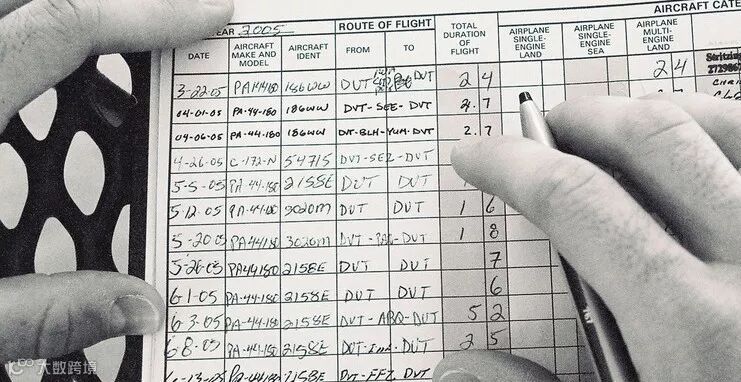 YEAR 2005 ROUTE OF FLIGHT TOTAL DURATION OF FLIGHT AIRCRAFT CATE
DATE AIRCRAFT MAKE AND MODEL AIRCRAFT IDENT FROM TO AIRPLANE SINGLE-ENGINE LAND AIRPLANE SINGLE-ENGINE SEA AIRPLANE MULTI-ENGINE LAND
3-22-05 PA44180 186WW DVT DVT 2 4 2 4
04-01-05 PA-44-180 186WW DVT-SEE-DVT 2.7
04-06-05 PA-44-180 186WW DVT-BLH-YUM-DVT 2.7
4-26-05 C-172-N 54715 DVT-SEZ-DVT
5-5-05 PA-44-180 2158E DVT DVT
5-12-05 PA-44-180 3020M DVT DVT 1 6
5-20-05 PA44180 3020M DVT DVT 1 8
5-26-05 PA44180 2158E DVT DVT 7
6-1-05 PA-44-180 2158E DVT DVT 6
6-3-05 PA-44-180 2158E DVT-ABQ-DVT 5 2
6-8-05 PA-44-180 2158E DVT DVT 2 5
PA-44180 2158E DVT-FFZ DVT